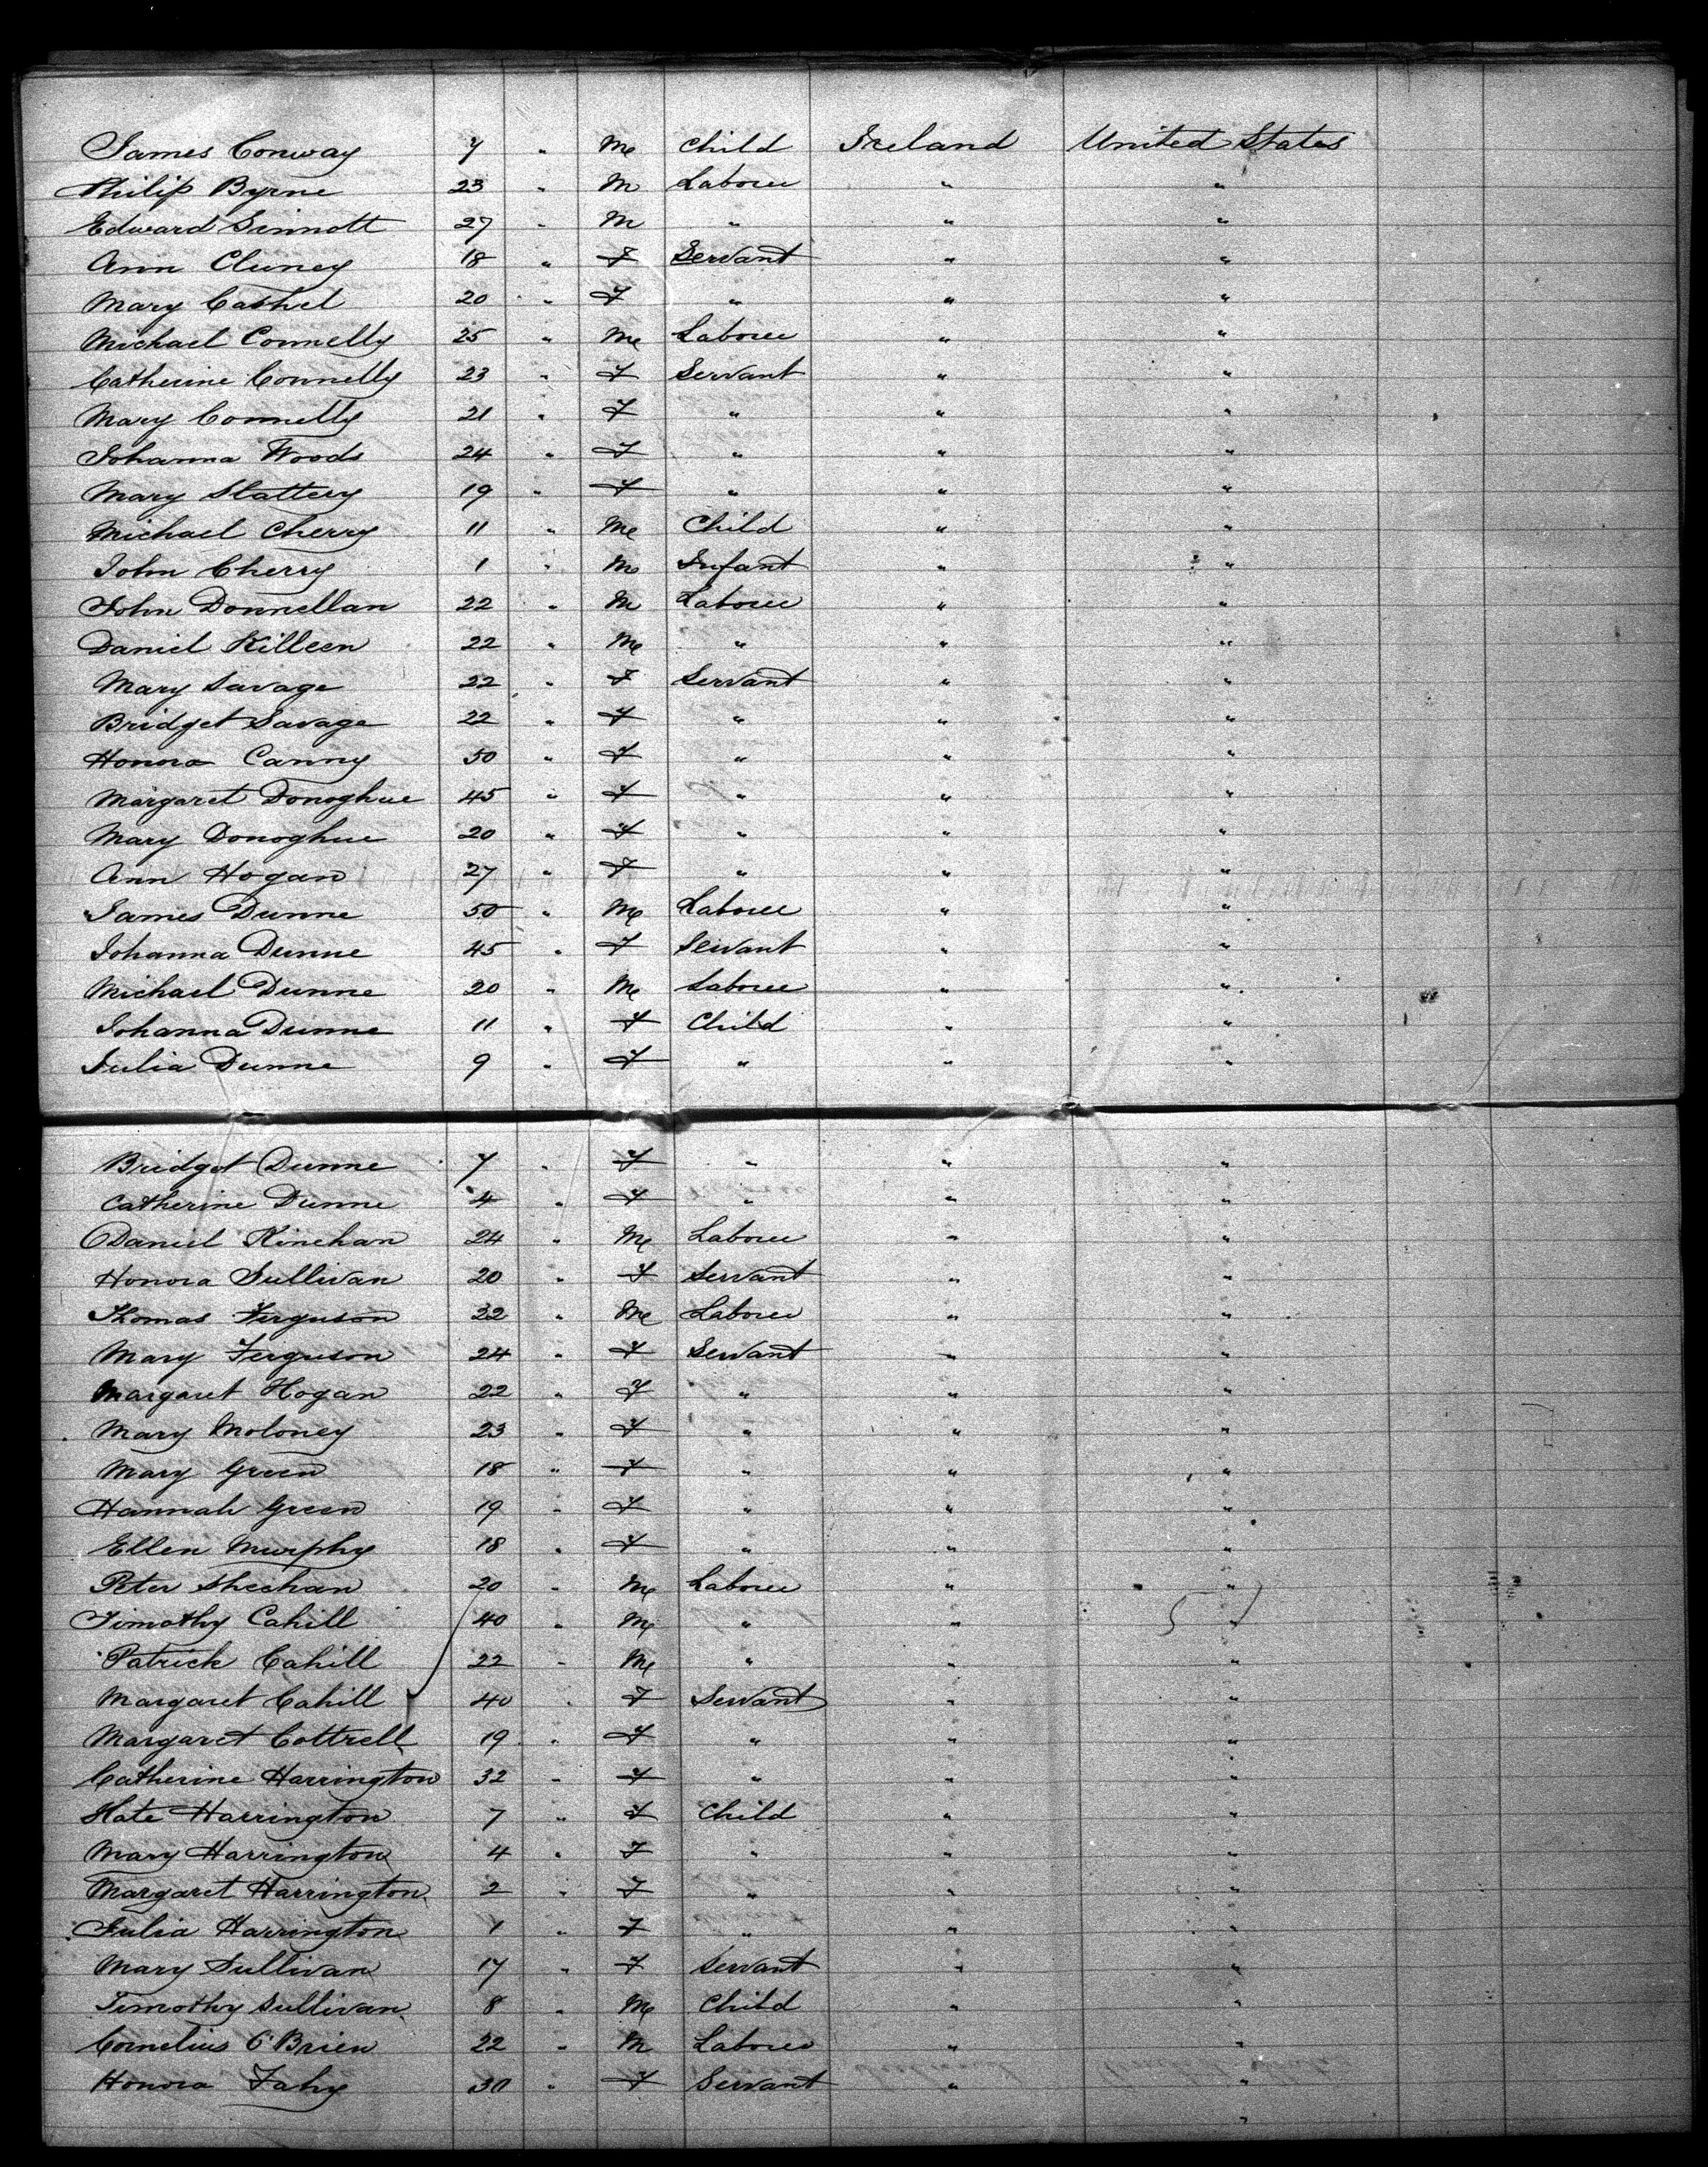 James Conway 7 " M Child Ireland United States
Philip Byrne 23 " M Laborer " "
Edward Sinnott 27 " M " " "
Ann Cluney 18 " F Servant " "
Mary Cashel 20 " F " " "
Michael Connelly 25 " M Laborer " "
Catherine Connelly 23 " F Servant " "
Mary Connelly 21 " F " " "
Johanna Woods 24 " F " " "
Mary Slattery 19 " F " " "
Michael Cherry 11 " M Child " "
John Cherry 1 " M Infant " "
John Donnellan 22 " M Laborer " "
Daniel Killeen 22 " M " " "
Mary Savage 22 " F Servant " "
Bridget Savage 22 " F " " "
Honora Canny 50 " F " " "
Margaret Donoghue 45 " F " " "
Mary Donoghue 20 " F " " "
Ann Hogan 27 " F " " "
James Dunne 50 " M Laborer " "
Johanna Dunne 45 " F Servant " "
Michael Dunne 20 " M Laborer " "
Johanna Dunne 11 " F Child " "
Julia Dunne 9 " F " " "
Bridget Dunne 7 " F " " "
Catherine Dunne 4 " F " " "
Daniel Kinehan 24 " M Laborer " "
Honora Sullivan 20 " F Servant " "
Thomas Ferguson 22 " M Laborer " "
Mary Ferguson 24 " F Servant " "
Margaret Hogan 22 " F " " "
Mary Moloney 23 " F " " "
Mary Green 18 " F " " "
Hannah Green 19 " F " " "
Ellen Murphy 18 " F " " "
Peter Sheehan 20 " M Laborer " "
Timothy Cahill 40 " M " " "
Patrick Cahill 22 " M " " "
Margaret Cahill 40 " F Servant " "
Margaret Cottrell 19 " F " " "
Catherine Harrington 32 " F " " "
Kate Harrington 7 " F Child " "
Mary Harrington 4 " F " " "
Margaret Harrington 2 " F " " "
Julia Harrington 1 " F " " "
Mary Sullivan 17 " F Servant " "
Timothy Sullivan 8 " M Child " "
Cornelius O'Brien 22 " M Laborer " "
Honora Fahy 30 " F Servant " "
"